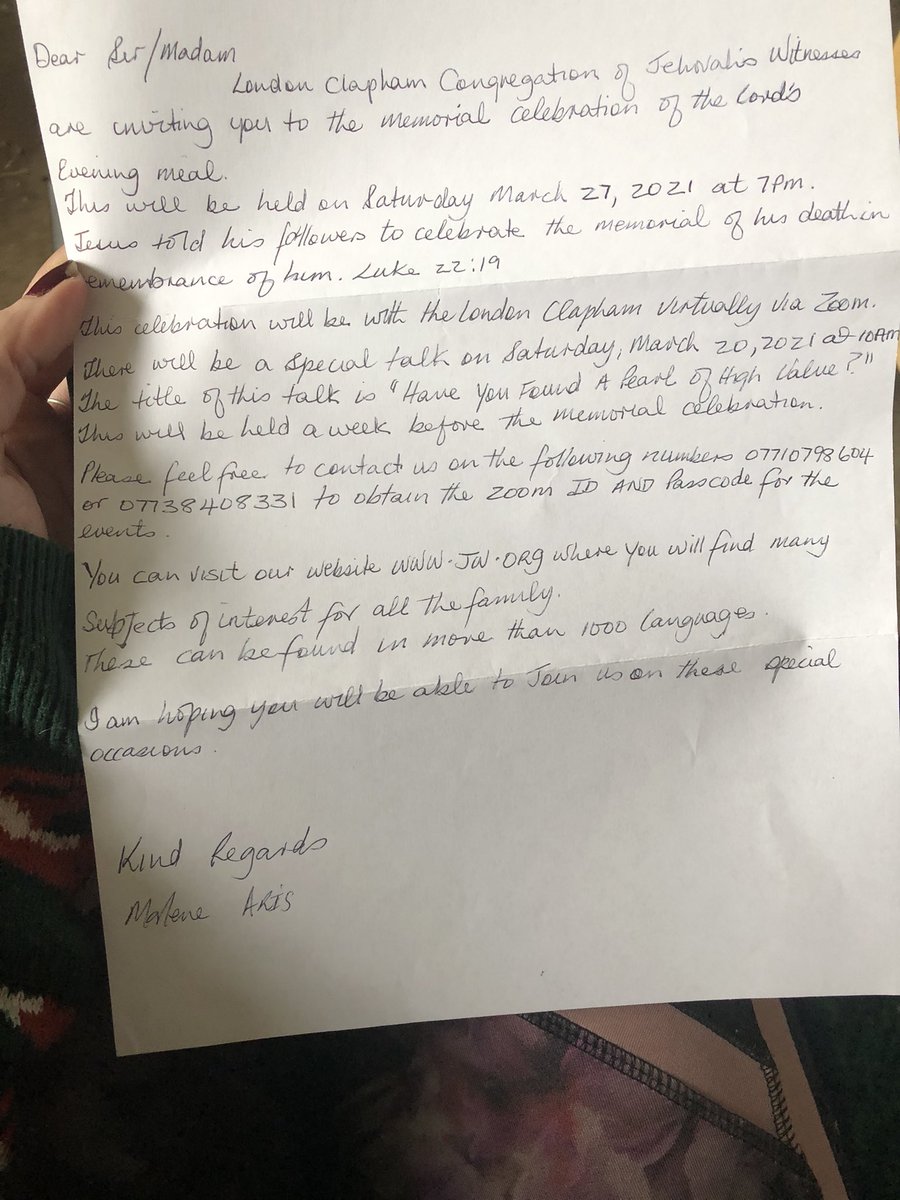 Dear Sir/Madam
London Clapham Congregation of Jehovah's Witnesses
are inviting you to the memorial celebration of the Lord's
Evening meal.
This will be held on Saturday March 27, 2021 at 7pm.
Jesus told his followers to celebrate the memorial of his death in
remembrance of him. Luke 22:19
This celebration will be with the London Clapham virtually via Zoom.
There will be a special talk on Saturday, March 20, 2021 at 10AM
The title of this talk is "Have You Found A Pearl of High Value?"
This will be held a week before the memorial celebration.
Please feel free to contact us on the following numbers 07710798604
or 07738408331 to obtain the zoom ID AND Passcode for the
events.
You can visit our website WWW.JW.ORG where you will find many
Subjects of interest for all the family.
These can be found in more than 1000 languages.
I am hoping you will be able to Join us on these special
occasions.
Kind Regards
Marlene ARIS